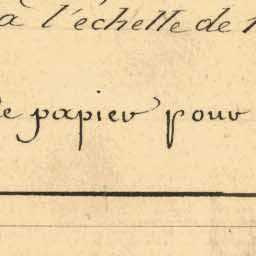 à l'échelle de
papier pour